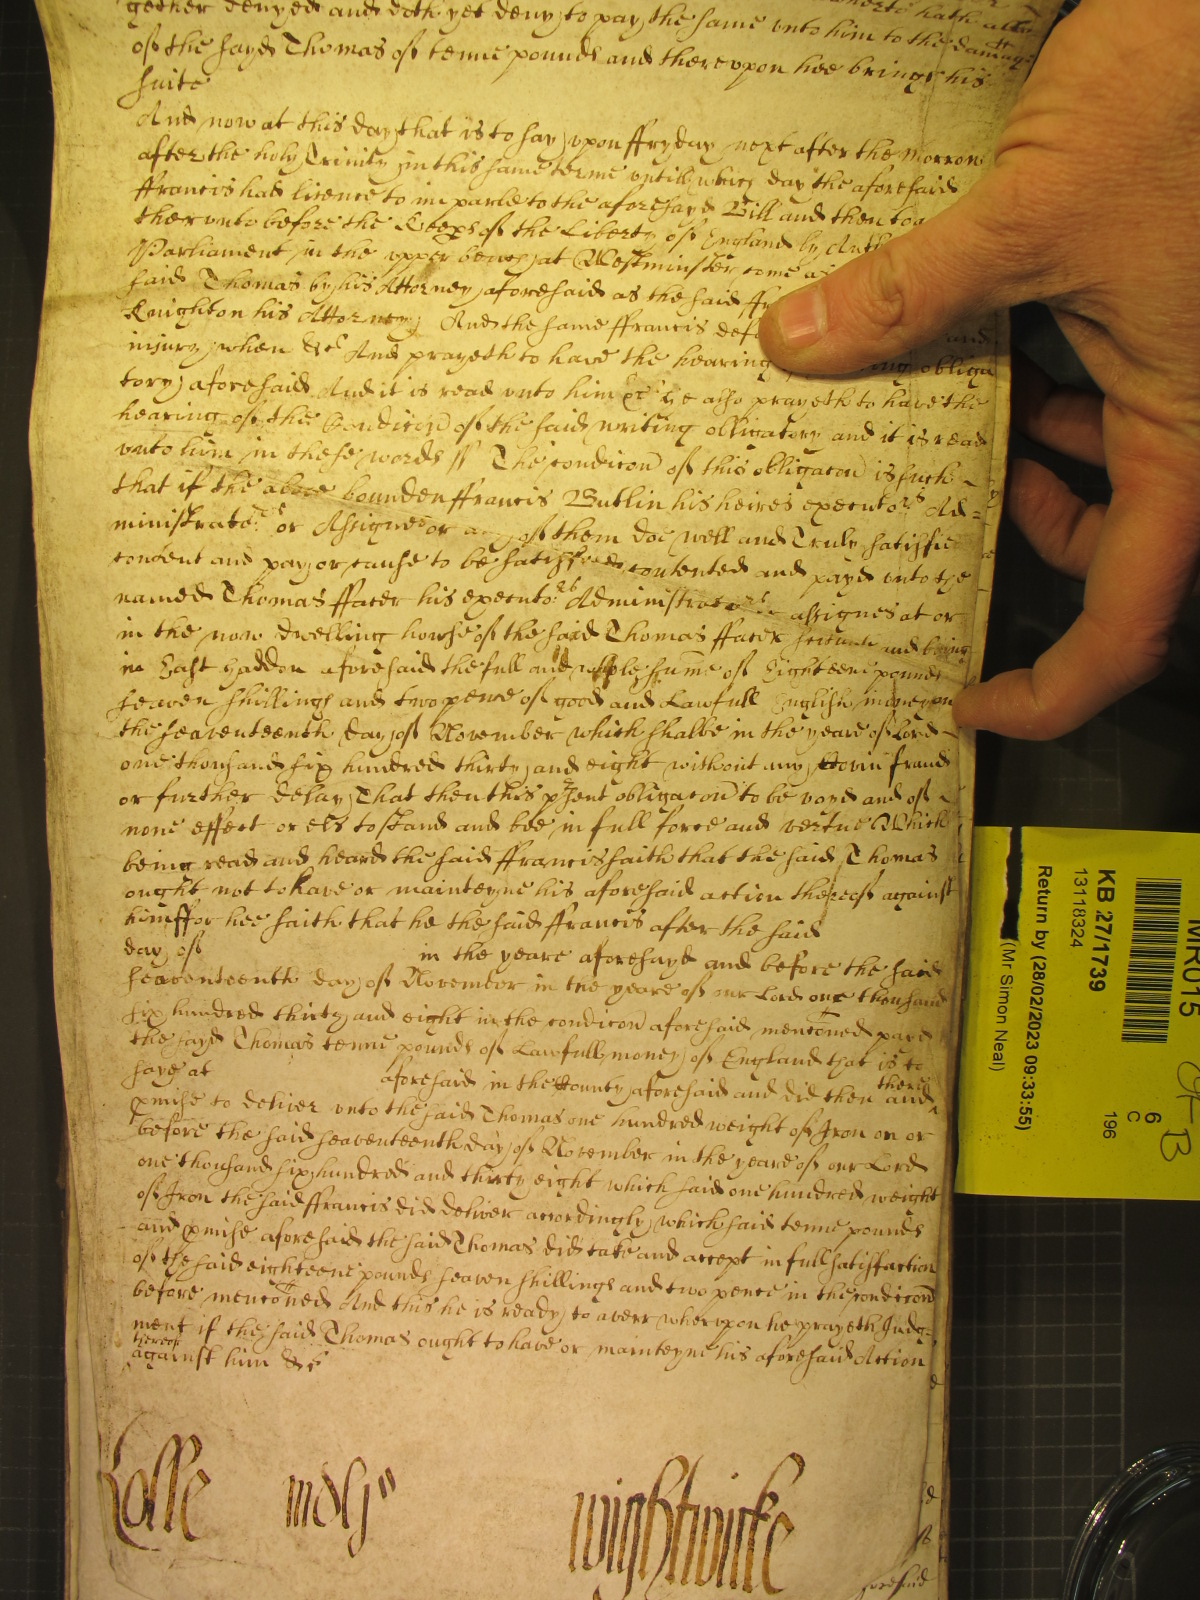 gether denyed and doth yet deny to pay the same unto him to the damage
of the sayd Thomas of tenne pounds and thereupon hee brings his
suite
And now at this day that is to say upon ffryday next after the morrow
after the holy Trinity in this same terme untill which day the aforesaid
ffrancis had licence to imparle to the aforesayd Bill and then to
therunto before the Keeps of the Liberty of England by Auth
Parliament in the upper bench at Westminster come as
said Thomas by his Attorney aforesaid as the said ffr
Knighton his Attorney And the same ffrancis defe and
injury when &c And prayeth to have the hearing obliga
tory aforesaid And it is read unto him &c he also prayeth to have the
hearing of the Condicion of the said writing obligatory and it is read
unto him in these words ss The condicon of this obligacon is such
that if the above bounden ffrancis Butlin his heires executors Ad=
ministrators or Assignes or any of them doe well and Truly satisfie
content and pay or cause to be satisfied contented and payd unto the
named Thomas ffacer his executors Administrators assignes at or
in the now dwelling howse of the said Thomas ffacer scituate and being
in East Haddon aforesaid the full and whole sume of Eighteene pounds
seaven shillings and two pence of good and Lawfull English money on
the seaventeenth day of November which shalbe in the yeare of Lord
one thousand six hundred thirty and eight without any Covin fraud
or further delay That then this psent obligacon to be voyd and of
none effect or els to stand and bee in full force and vertue Which
being read and heard the said ffrancis saith that the said Thomas
ought not to have or mainteyne his aforesaid action thereof against
him ffor hee saith that he the said ffrancis after the said
day of in the yeare aforesayd and before the said
seaventeenth day of November in the yeare of our Lord one thousand
six hundred thirty and eight in the condicon aforesaid mentoned payd
the sayd Thomas tenne pounds of Lawfull money of England that is to
saye at aforesaid in the County aforesaid and did then and there
pmise to deliver unto the said Thomas one hundred weight of Iron on or
before the said seaventeenth day of November in the yeare of our Lord
one thousand six hundred and thirty eight which said one hundred weight
of Iron the said ffrancis did deliver accordingly which said tenne pounds
and pmise aforesaid the said Thomas did take and accept in full satisfaction
of the said eighteene pounds seaven shillings and two pence in the condicon
before mentoned And this he is ready to averr wherupon he prayeth Judg=
ment if the said Thomas ought to have or mainteyne his aforesaid Action
thereof
against him &c
Wightwicke
aforesaid
MR015
KB 27/1739
13118324
Return by (28/02/2023 09:33:55)
(Mr Simon Neal)
6
C
196